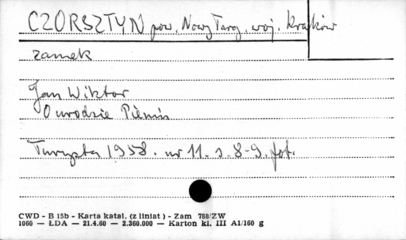 CZORSZTYN pow. Nowy Targ, woj. Kraków
zamek
Jan Wiktor
O urodzie Pienin
Turysta 1958. nr 11. s. 8-9. fot.
CWD - B 15b - Karta katal. (z liniat) - Zam 788/ZW
1060 — ŁDA — 21.4.60 — 2.360.000 — Karton kl. III A1/160 g